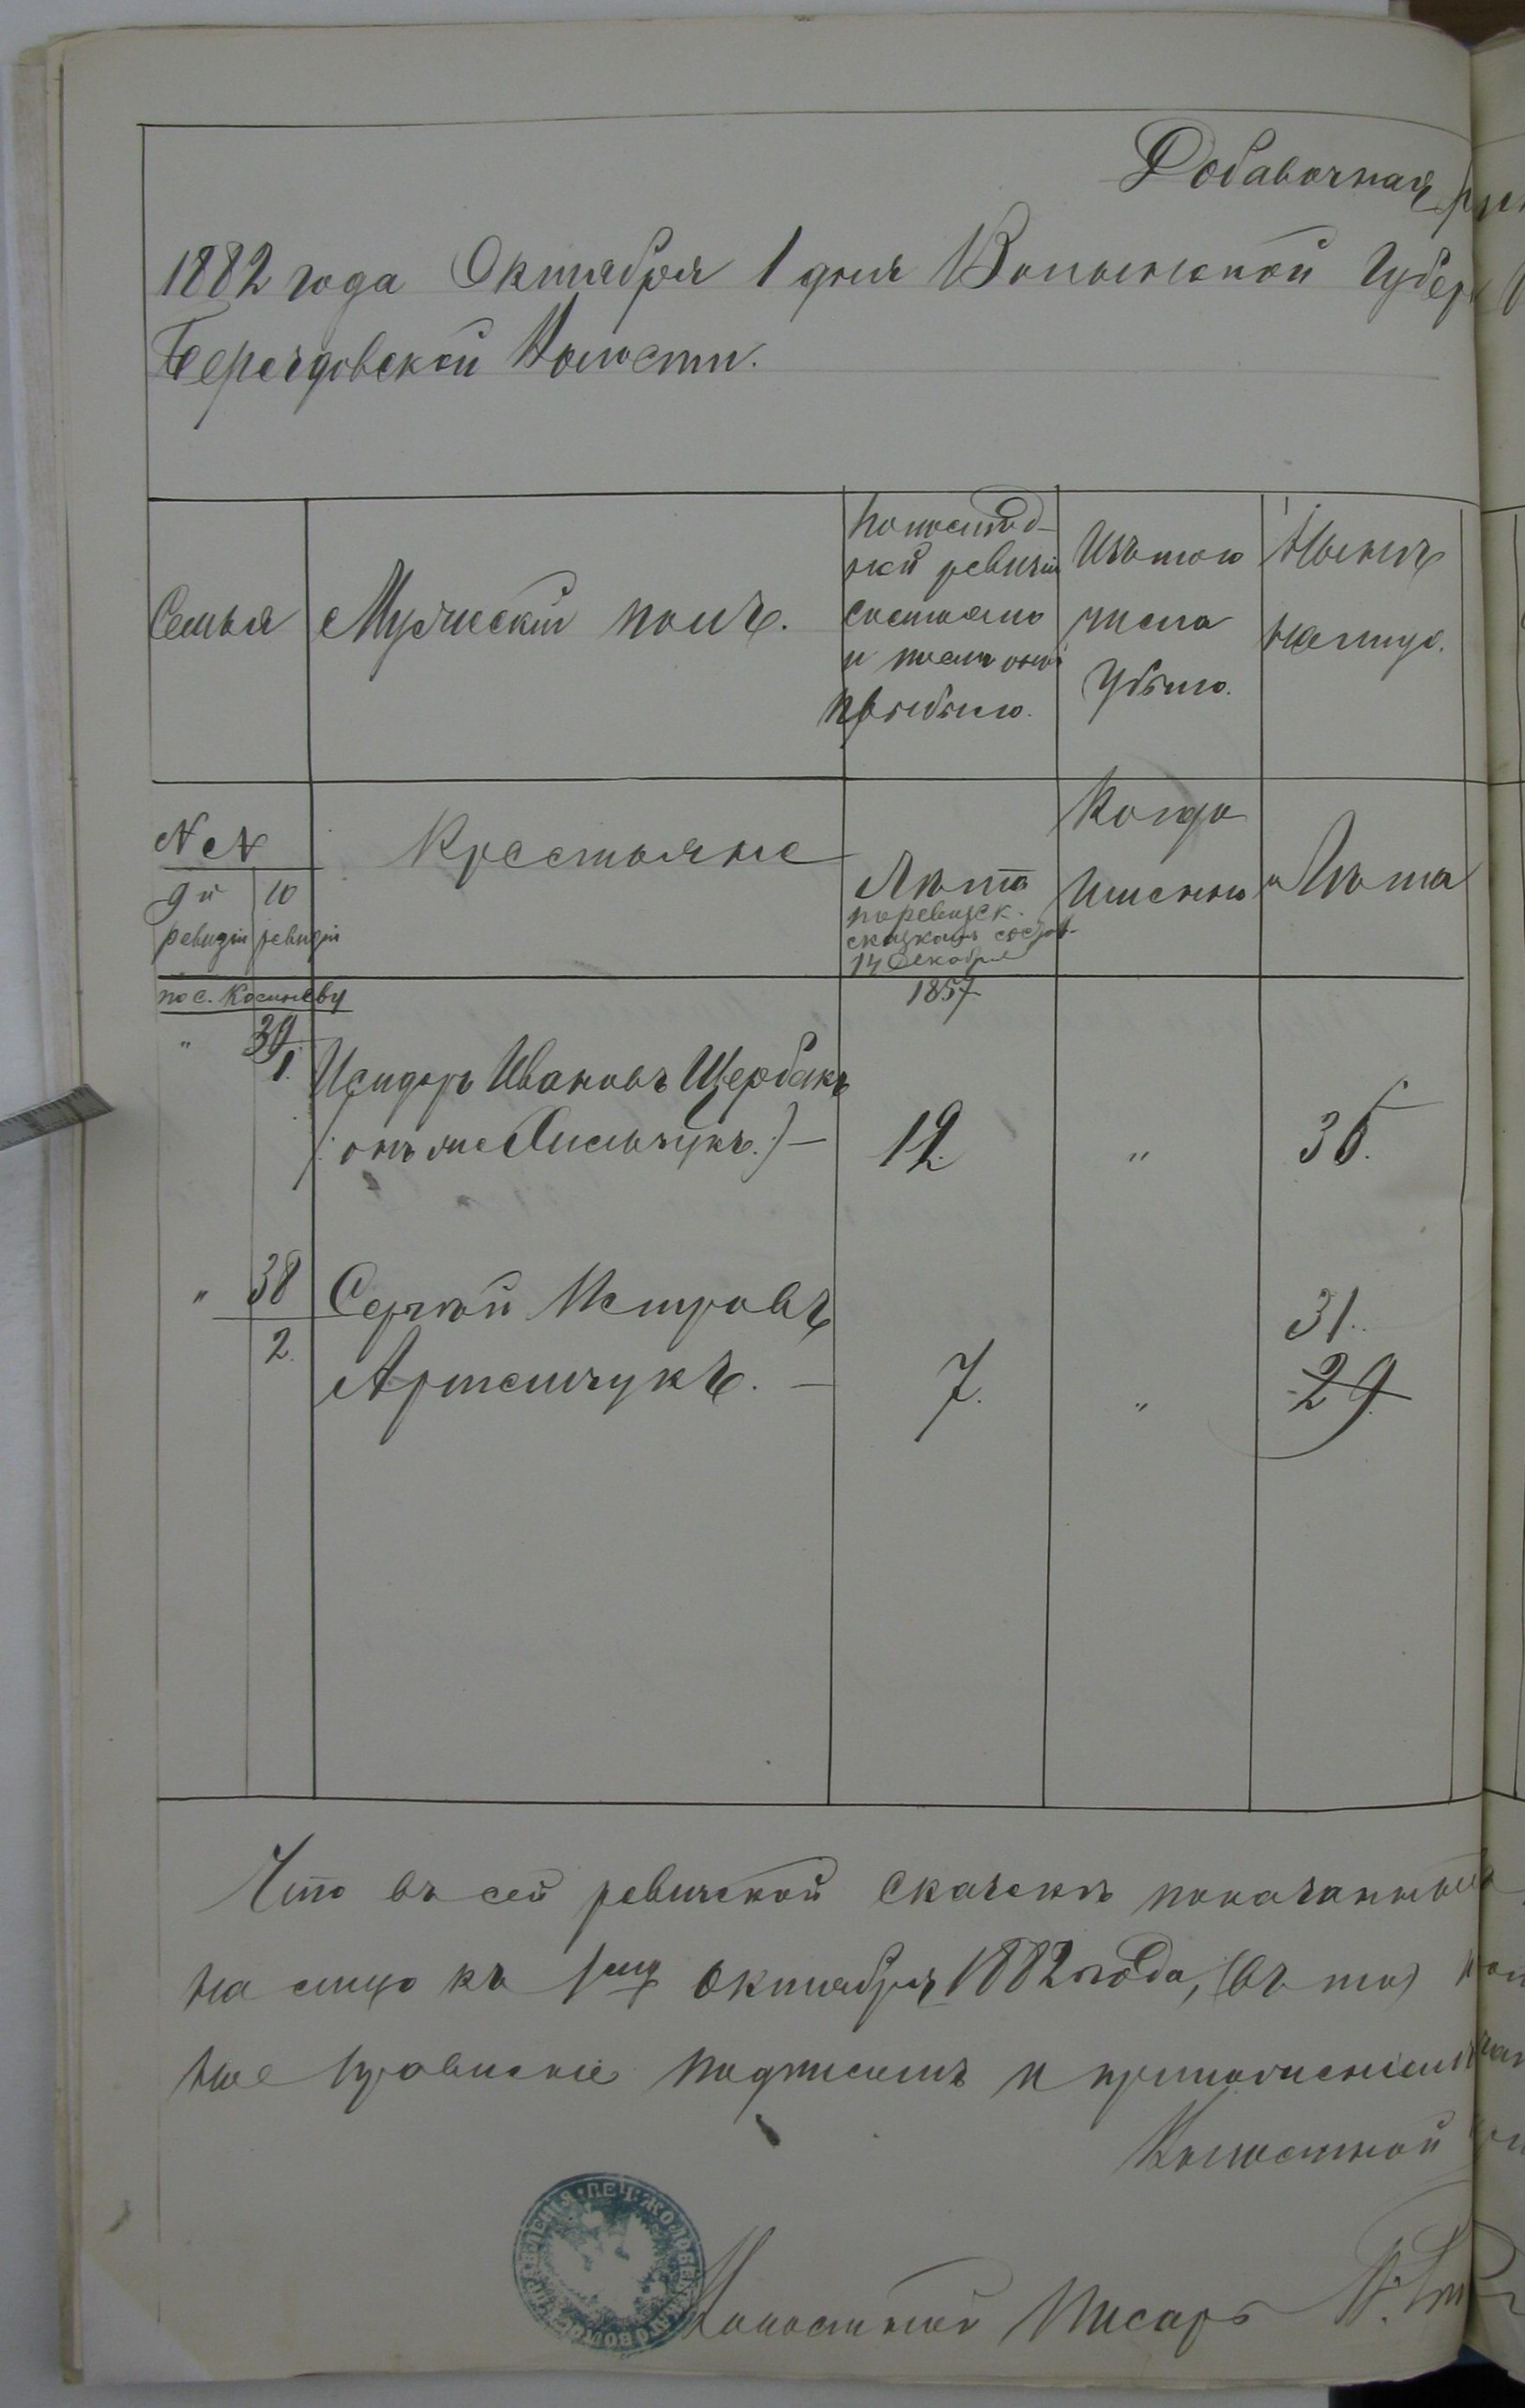 Добавочная
1882 года Октября 1 дня Волынской Губер
Берездовской Волости.
Семья
Мужескій полъ.
По послѣд-
ней ревизіи
состояло
и послѣ оной
прибыло.
Изъ того
числа
Убыло.
Нынѣ
на лицо.
№ №
9й
ревизіи
10
ревизіи
Крестьяне
Лѣта
по ревизск.
сказкамъ состав-
14 Декабря
1857
Когда
Именно
Лѣта
по с. Косиневу
" 39
1.
Исидоръ Ивановъ Щербакъ
(: онъ же :) —
12.
"
36.
" 38
2.
Сергѣй Петровъ
Артемчукъ. —
7.
"
31.
29.
Что въ сей ревизской сказкѣ показанные
на лицо къ 1му Октября 1882 года, (въ то)
подписемъ и приложеніемъ
Волостной
Волостный Писарь